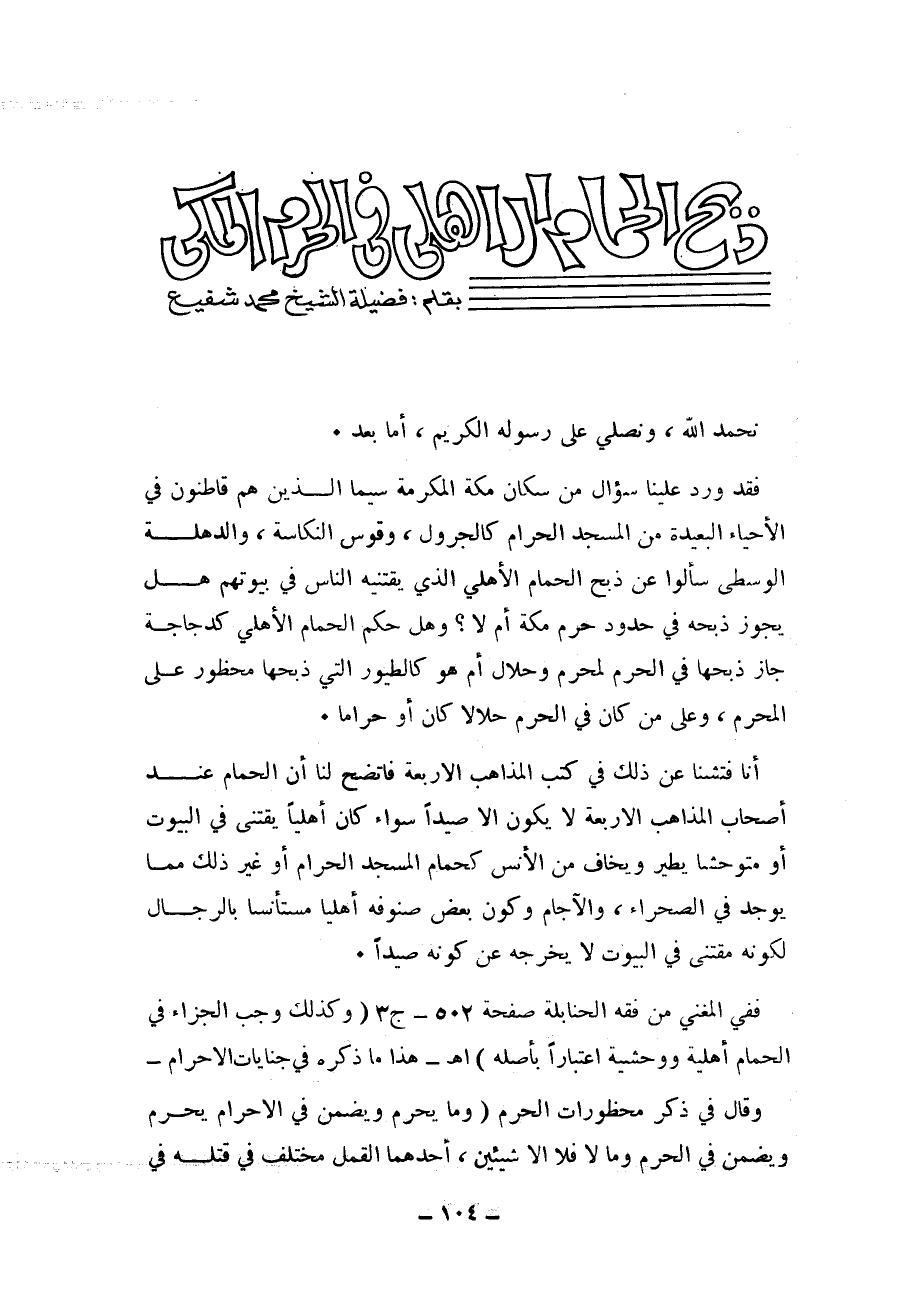 ذبح الحمام الاهلي في الحرم المكي
بقلم : فضيلة الشيخ محمد شفيع
نحمد الله ، ونصلي على رسوله الكريم ، أما بعد ٠
فقد ورد علينا سؤال من سكان مكة المكرمة سيما الـــذين هم قاطنون في
الأحياء البعيدة من المسجد الحرام كالجرول ، وقوس النكاسة ، والدهلــة
الوسطى سألوا عن ذبح الحمام الأهلي الذي يقتنيه الناس في بيوتهم هــل
يجوز ذبحه في حدود حرم مكة أم لا ؟ وهل حكم الحمام الأهلي كدجاجــة
جاز ذبحها في الحرم لمحرم وحلال أم هو كالطيور التي ذبحها محظور علــى
المحرم ، وعلى من كان في الحرم حلالا كان أو حراما ٠
أنا فتشنا عن ذلك في كتب المذاهب الاربعة فاتضح لنا أن الحمام عنــد
أصحاب المذاهب الاربعة لا يكون الا صيداً سواء كان أهلياً يقتنى في البيوت
أو متوحشا يطير ويخاف من الأنس كحمام المسجد الحرام أو غير ذلك ممـا
يوجد في الصحراء ، والآجام وكون بعض صنوفه أهليا مستأنسا بالرجــال
لكونه مقتنى في البيوت لا يخرجه عن كونه صيداً ٠
ففي المغني من فقه الحنابلة صفحة ٥٠٢ – ج٣ ( وكذلك وجب الجزاء في
الحمام أهلية ووحشية اعتباراً بأصله ) اهـ – هذا ما ذكره في جنايات الاحرام –
وقال في ذكر محظورات الحرم ( وما يحرم ويضمن في الاحرام يحـرم
ويضمن في الحرم وما لا فلا الا شيئين ، أحدهما القمل مختلف في قتلــه في
– ١٠٤ –